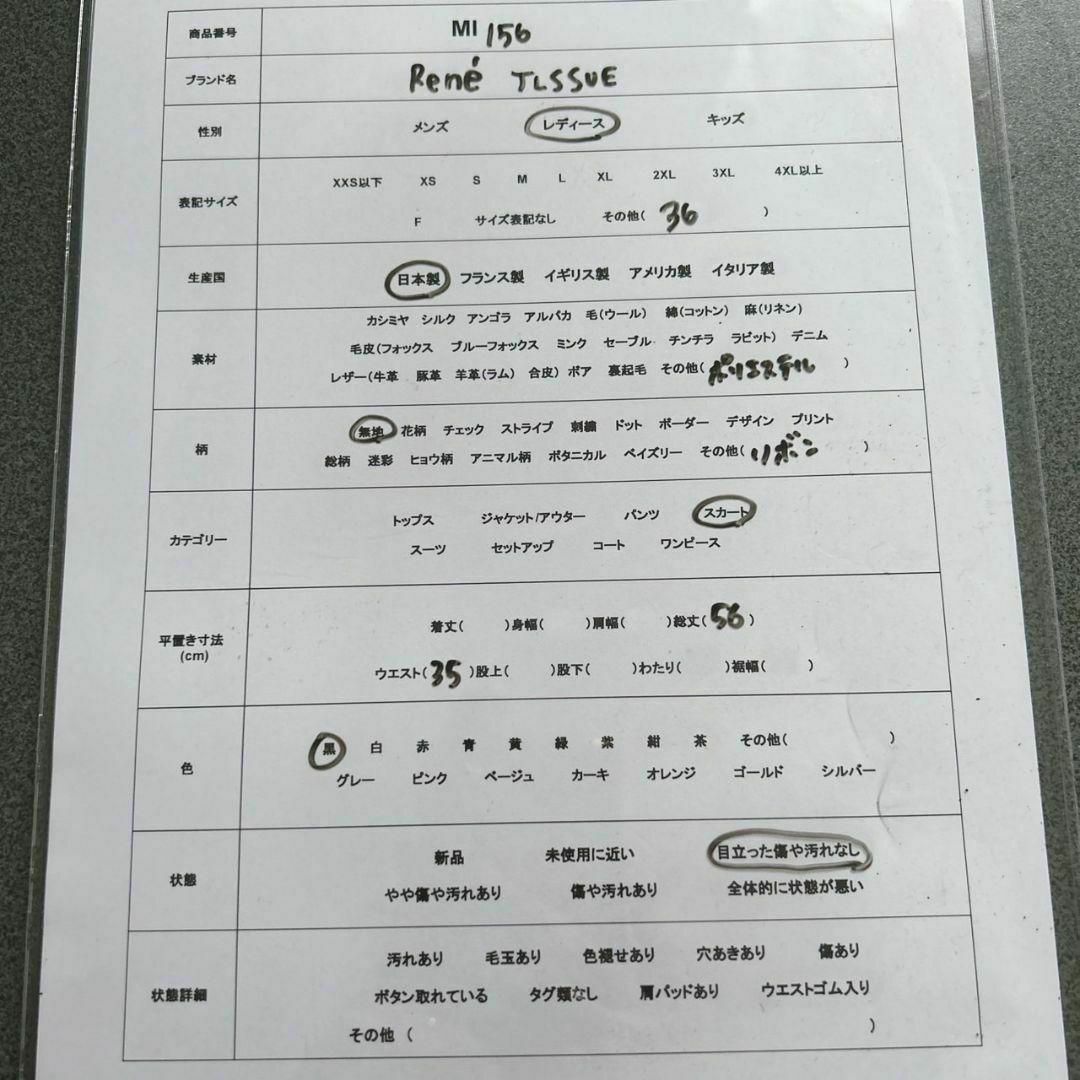 商品番号 MI 156
ブランド名 René TLSSUE
性別 メンズ レディース キッズ
表記サイズ
XXS以下 XS S M L XL 2XL 3XL 4XL以上
F サイズ表記なし その他( 36 )
生産国 日本製 フランス製 イギリス製 アメリカ製 イタリア製
素材
カシミヤ シルク アンゴラ アルパカ 毛(ウール) 綿(コットン) 麻(リネン)
毛皮(フォックス ブルーフォックス ミンク セーブル チンチラ ラビット) デニム
レザー(牛革 豚革 羊革(ラム) 合皮) ボア 裏起毛 その他( ポリエステル )
柄
無地 花柄 チェック ストライプ 刺繍 ドット ボーダー デザイン プリント
総柄 迷彩 ヒョウ柄 アニマル柄 ボタニカル ペイズリー その他( リボン )
カテゴリー
トップス ジャケット/アウター パンツ スカート
スーツ セットアップ コート ワンピース
平置き寸法
(cm)
着丈( )身幅( )肩幅( )総丈( 56 )
ウエスト( 35 )股上( )股下( )わたり( )裾幅( )
色
黒 白 赤 青 黄 緑 紫 紺 茶 その他( )
グレー ピンク ベージュ カーキ オレンジ ゴールド シルバー
状態
新品 未使用に近い 目立った傷や汚れなし
やや傷や汚れあり 傷や汚れあり 全体的に状態が悪い
状態詳細
汚れあり 毛玉あり 色褪せあり 穴あきあり 傷あり
ボタン取れている タグ類なし 肩パッドあり ウエストゴム入り
その他 ( )